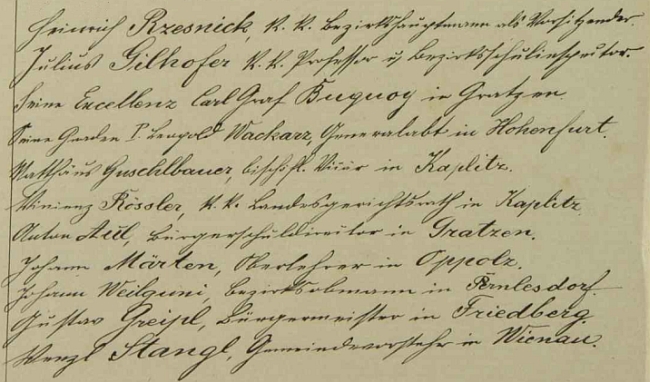 Heinrich Rzesnick, k. k. Bezirkshauptmann als Vorsitzender.
Julius Gilhofer k. k. Professor u. Bezirksschulinspektor.
Seine Excellenz Carl Graf Buquoy in Gratzen.
Seine Gnaden P. Leopold Wackarz, Generalabt in Hohenfurt.
Matthäus Guschlbauer, bischöfl. Vicär in Kaplitz.
Vinzenz Rössler, k. k. Landesgerichtsrath in Kaplitz.
Anton Aull, Bürgerschuldirector in Gratzen.
Johann Märten, Oberlehrer in Oppolz.
Johann Weilguni, Bezirksobmann in Pernlesdorf.
Gustav Greipl, Bürgermeister in Friedberg.
Wenzl Stangl, Gemeindevorsteher in Wienau.